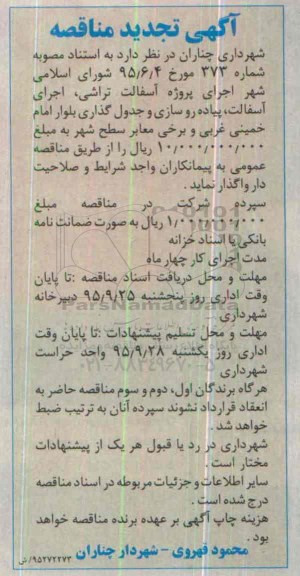 آگهی تجدید مناقصه
شهرداری چناران در نظر دارد به استناد مصوبه
شماره ۳۷۳ مورخ ۹۵/۶/۴ شورای اسلامی
شهر اجرای پروژه آسفالت تراشی، اجرای
آسفالت، پیاده رو سازی و جدول گذاری بلوار امام
خمینی غربی و برخی معابر سطح شهر به مبلغ
۱۰/۰۰۰/۰۰۰/۰۰۰ ریال را از طریق مناقصه
عمومی به پیمانکاران واجد شرایط و صلاحیت
دار واگذار نماید .
سپرده شرکت در مناقصه مبلغ
ریال به صورت ضمانت نامه
بانکی یا اسناد خزانه
مدت اجرای کار چهار ماه
مهلت و محل دریافت اسناد مناقصه :تا پایان
وقت اداری روز پنجشنبه ۹۵/۹/۲۵ دبیرخانه
شهرداری
ParsNamadData
مهلت و محل تسلیم پیشنهادات :تا پایان وقت
اداری روز یکشنبه ۹۵/۹/۲۸ واحد حراست
شهرداری
هرگاه برندگان اول، دوم و سوم مناقصه حاضر به
انعقاد قرارداد نشوند سپرده آنان به ترتیب ضبط
خواهد شد .
شهرداری در رد یا قبول هر یک از پیشنهادات
مختار است .
سایر اطلاعات و جزئیات مربوطه در اسناد مناقصه
درج شده است .
هزینه چاپ آگهی بر عهده برنده مناقصه خواهد
بود .
محمود قهروی - شهردار چناران
۹۵۲۷۲۲۷۳/ ش